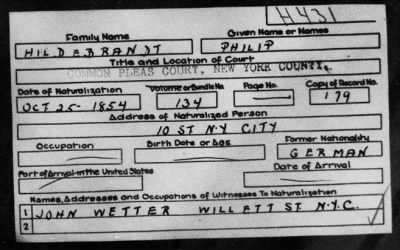 H431
Family Name Given Name or Names
HILDEBRANDT PHILIP
Title and Location of Court
COMMON PLEAS COURT, NEW YORK COUNTY.
Date of Naturalization Volume or Bundle No. Page No. Copy of Record No.
OCT 25 - 1854 134 — 179
Address of Naturalized Person
10 ST N.Y CITY
Occupation Birth Date or Age Former Nationality
GERMAN
Port of Arrival in the United States Date of Arrival
Names, Addresses and Occupations of Witnesses To Naturalization
1 JOHN WETTER WILLETT ST N.Y.C.
2